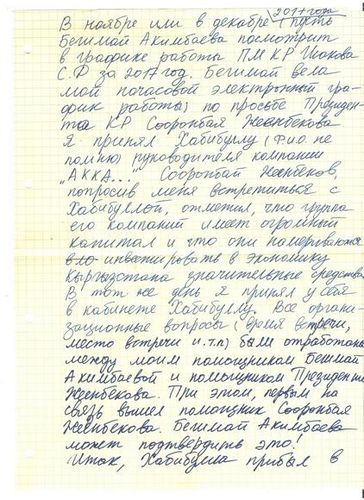 2017 года
В ноябре или в декабре ( пусть
Бегимай Акимбаева посмотрит
в графике работы ПМ КР Исакова
С.Ф за 2017 год. Бегимай вела
мой почасовой электронный гра-
фик работы) по просьбе Президен-
та КР Сооронбая Жеенбекова
я принял Хабибуллу (Ф.и.о. не
помню) руководителя компании
"АККА..." Сооронбай Жеенбеков,
попросив меня встретиться с
Хабибуллой, отметил, что группа
его компаний имеет огромный
капитал и что они намереваются
инвестировать в экономику
Кыргызстана значительные средства.
В тот же день я принял у себя
в кабинете Хабибуллу. Все органи-
зационные вопросы ( время встречи,
место встречи и.т.п) были отработаны
между моим помощником Бегимай
Акимбаевой и помощником Президента
Жеенбекова. При этом, первым на
связь вышел помощник Сооронбая
Жеенбекова. Бегимай Акимбаева
может подтвердить это!
Итак, Хабибулла прибыл в